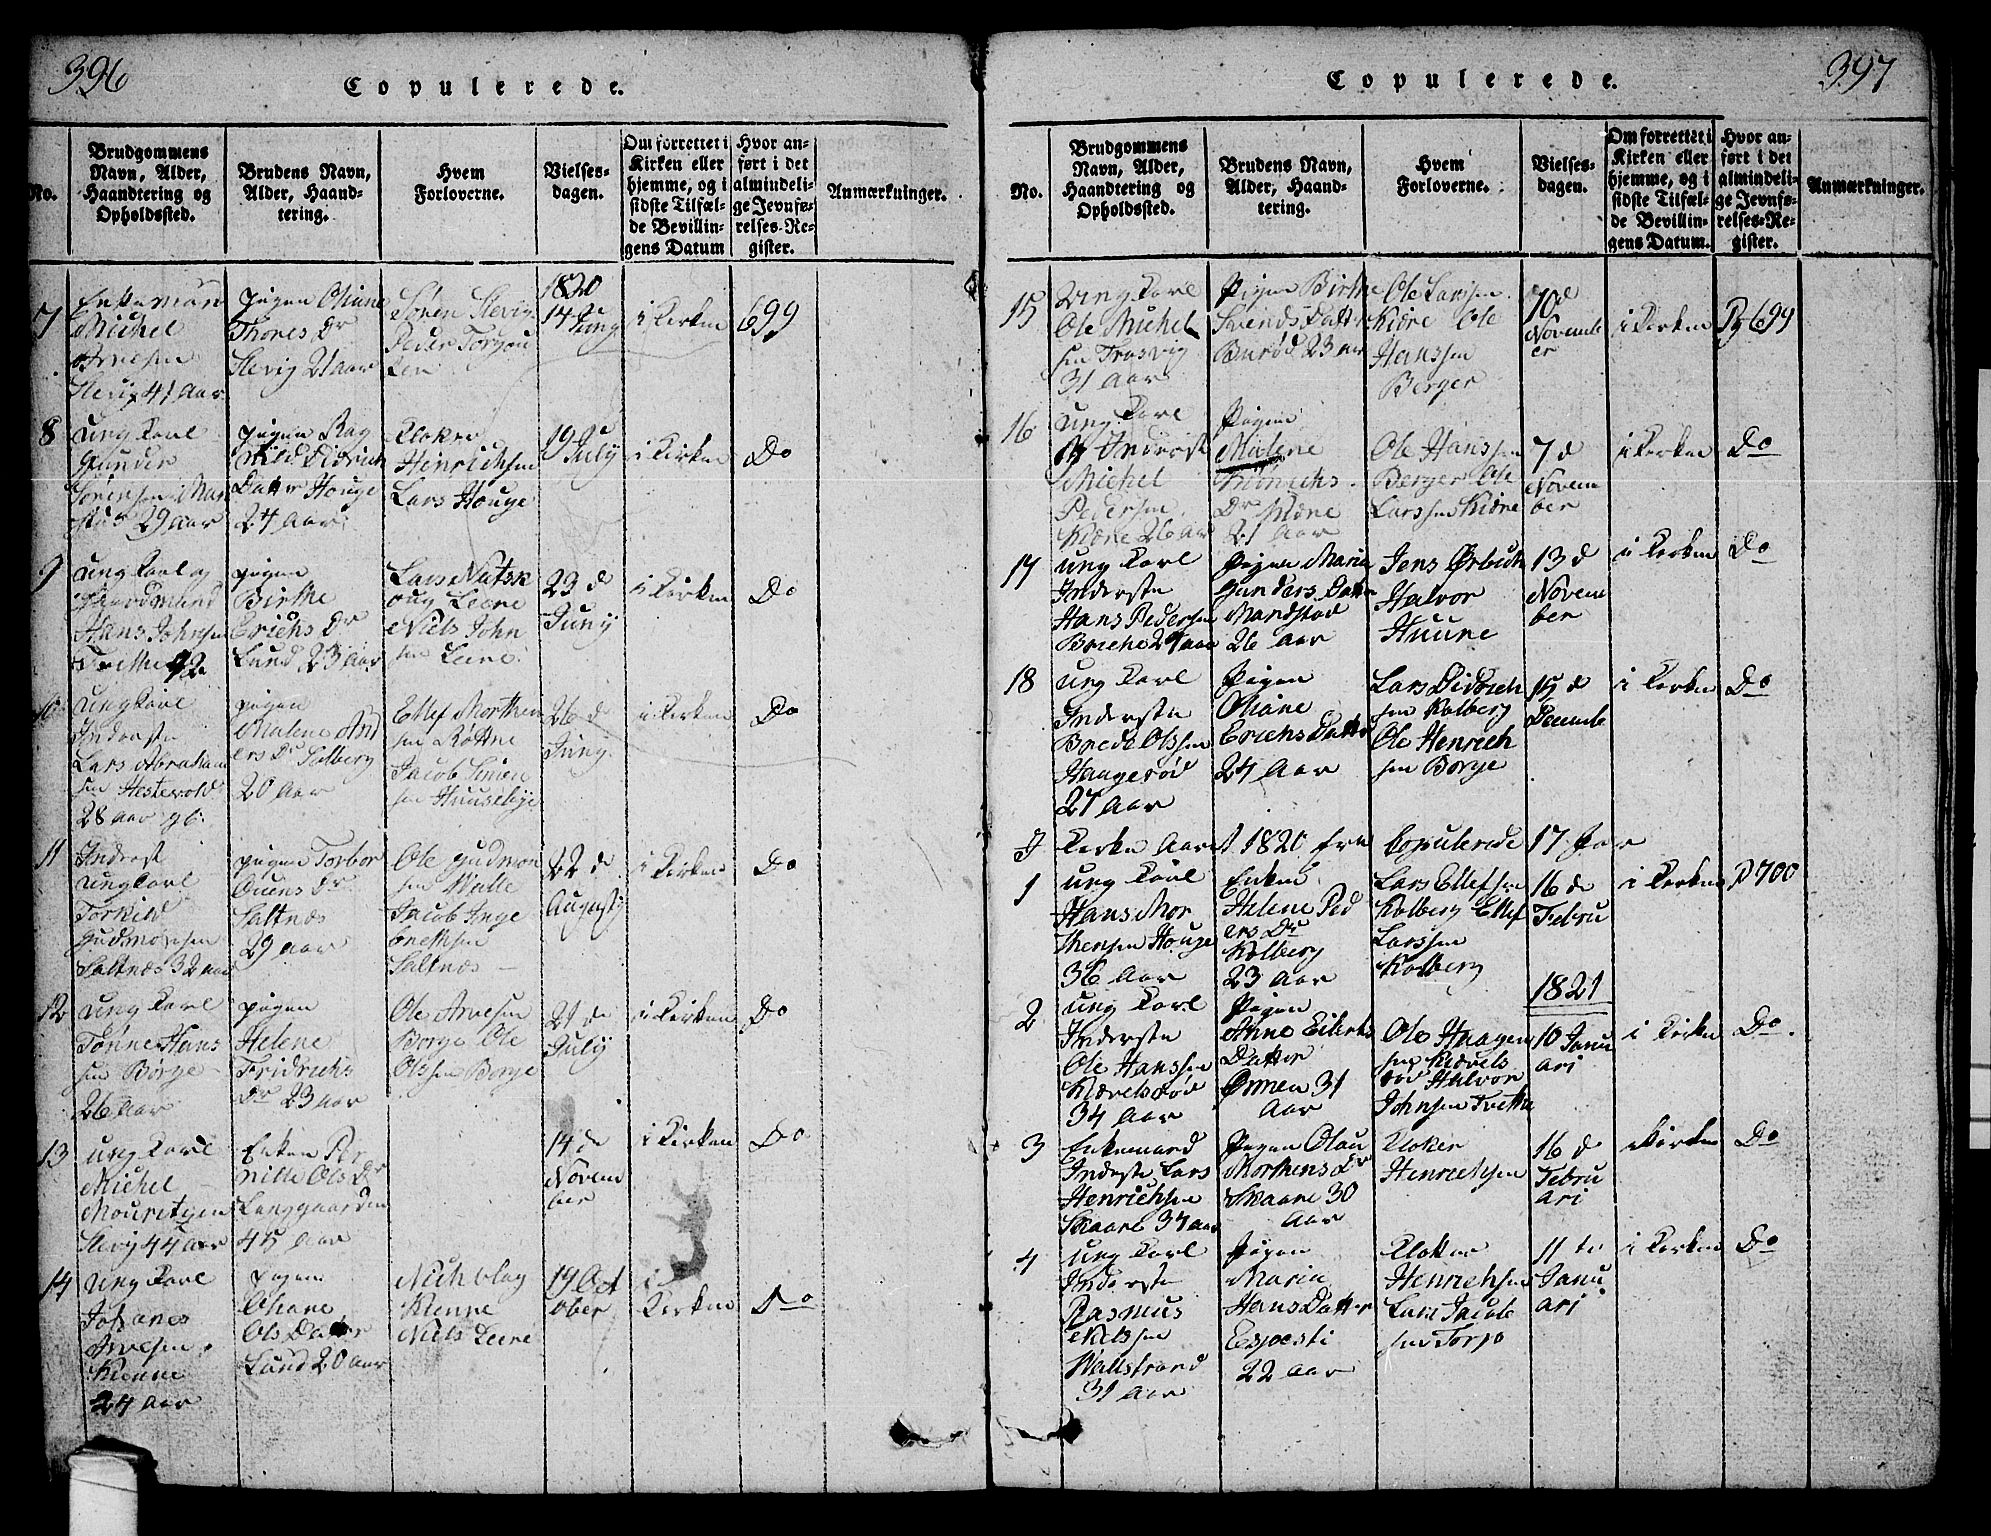 396
Copulerede.
No.
Brudgommens
Navn, Alder,
Haandtering og
Opholdssted.
Brudens Navn,
Alder, Haand-
tering.
Hvem
Forloverne.
Vielses-
dagen.
Om forrettet i
Kirken eller
hjemme, og i
sidste Tilfæl-
de Bevillin-
gens Datum
Hvor an-
ført i det
almindeli-
ge Jevnfø-
relses-Re-
gister.
Anmærkninger.
7
Enkemand
Michel
Arvesen
Slevig 41 Aar
pigen Oliane
Thores Dr
Slevig 21 aar
Søren Slevig
Peder Torgou
Leu
1820
14 Juny
i Kirken
699
8
ung Karl
Gunder
Sørensen Man
stad 29 aar
pigen Rag
nild Didrich
Datter Houge
24 Aar
Klokker
Hinrichsen
Lars Houge
19 July
i Kirken
Do
9
ung Karl og
Gaardmand
Hans Johnsen
Tvethe 42
pigen
Birthe
Erichs Dr
Lund 23 aar
Lars
oug Leere
Niels John
sen Leere
23 d
Juny
i Kirken
Do
10
ung Karl
Inderste
Lars Abraham
sen Hestevold
28 aar gl:
pigen
Malene And
ers Dr Solberg
20 Aar
Ellef Morthen
sen Røttne
Jacob Simen
sen Huusebye
26 d
Juny
i Kirken
Do
11
Inderst
ung Karl
Torkild
Gudmonsen
Saltnæs 32 aar
pigen Torbor
Ouens Dr
Saltnæs
29 aar
Ole Gudmon
sen Walle
Jacob Inge
bretthsen
Saltnæs
22 de
Augusty
i Kirken
Do
12
ung Karl
Tønne Hans
sen Borge
26 Aar
pigen
Helene
Fridrichs
Dr 23 aar
Ole Arvesen
Borge Ole
Olssen Borge
21 de
July
i Kirken
Do
13
ung Karl
Michel
Mouritzen
Slevig 44 Aar
Enken Per
nille Ols Dr
Langgaarden
45 Aar
14 de
Novem
ber
i Kirken
Do
14
ung Karl
Johanes
Arvesen
Kienne
24 aar
pigen
Oliane
Ols Datter
Lund 20 aar
Kienne
Niels Leere
19 Oct
ober
i
Kirken
Do
397
Copulerede.
No.
Brudgommens
Navn, Alder,
Haandtering og
Opholdssted.
Brudens Navn,
Alder, Haand-
tering.
Hvem
Forloverne.
Vielses-
dagen.
Om forrettet i
Kirken eller
hjemme, og i
sidste Tilfæl-
de Bevillin-
gens Datum.
Hvor an-
ført i det
almindeli-
ge Jevnfø-
relses-Re-
gister.
Anmærkninger.
15
Ung Karl
Ole Michel
sen Trosvig
31 Aar
Pigen Birthe
Svends Datter
Burød 23 aar
Ole Larssen
Kiære Ole
Hanssen
Berger
10 d
Novemb
er
i Kirken
Pg 699
16
ung Karl
Inderst
Michel
Pedersen
Kiære 26 Aar
Pigen
Malene
Hinrichs
Dr Kiære
21 Aar
Ole Hanssen
Berger Ole
Larssen Kiære
7 d
Novem
ber
i Kirken
Do
17
ung Karl
Inderste
Hans Pedersen
Breche 24 aar
Pigen Maria
Gunders Datter
Mandstad
26 Aar
Jens Ørbech
Halvor
Huune
13 d
Novem
ber
i Kirken
Do
18
ung Karl
Inderste
Brede Olssen
Haugerød
27 Aar
Pigen
Oliane
Erichs Datter
24 Aar
Lars Didrich
sen Kolberg
Ole Henrich
sen Borge
15 d
Decembr
i Kirken
Do
I Kirke Aaret 1820 ere Copulerede 17 Par
1
ung Karl
Hans Mor
thensen Houge
36 Aar
Enken
Helene Ped
ers Dr
Kolberg
23 Aar
Lars Ellefsen
Kolberg Ellef
Larssen
Kolberg
16 de
Febru
i Kirken
P 700
1821
2
ung Karl
Inderste
Ole Hanssen
Kiærelsrød
34 Aar
Pigen
Anne Eilerts
Datter
Ømmen 31
Aar
Ole Haagen
sen Kiærels
rød Halvor
Johnsen Tvethe
10 Janu
ari
i Kirken
Do.
3
Enkemand
Inderste Lars
Henrichsen
Skaare 34 aar
Pigen Olau
Morthens Dr
Skaare 30
Aar
Kloker
Henrichsen
16 d
Febru
ari
i Kirken
Do
4
ung Karl
Inderste
Rasmus
Nielssen
Wallstrand
31 Aar
Pigen
Maria
Hans Datter
Espoesti
22 Aar
Klokker
Henrichsen
Lars Jacob
sen Torp
11 te
Janu
ari
i Kirken
Do